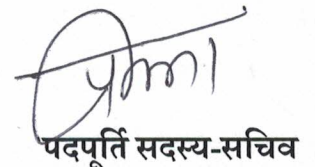 पदपूर्ति सदस्य-सचिव